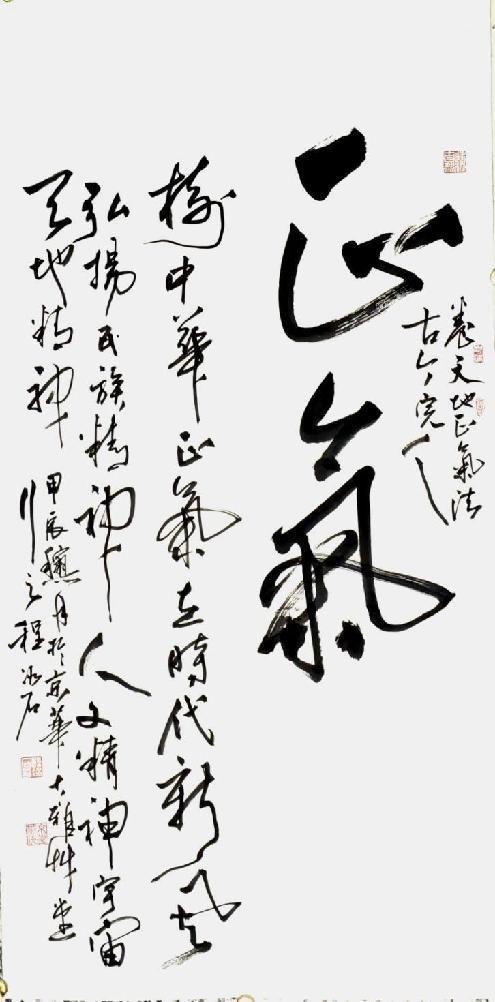 養天地正氣法
古今完人
正氣
樹中華正氣立時代新風
弘揚民族精神人文精神宇宙
天地精神
甲辰穐月於京華大雅艸堂